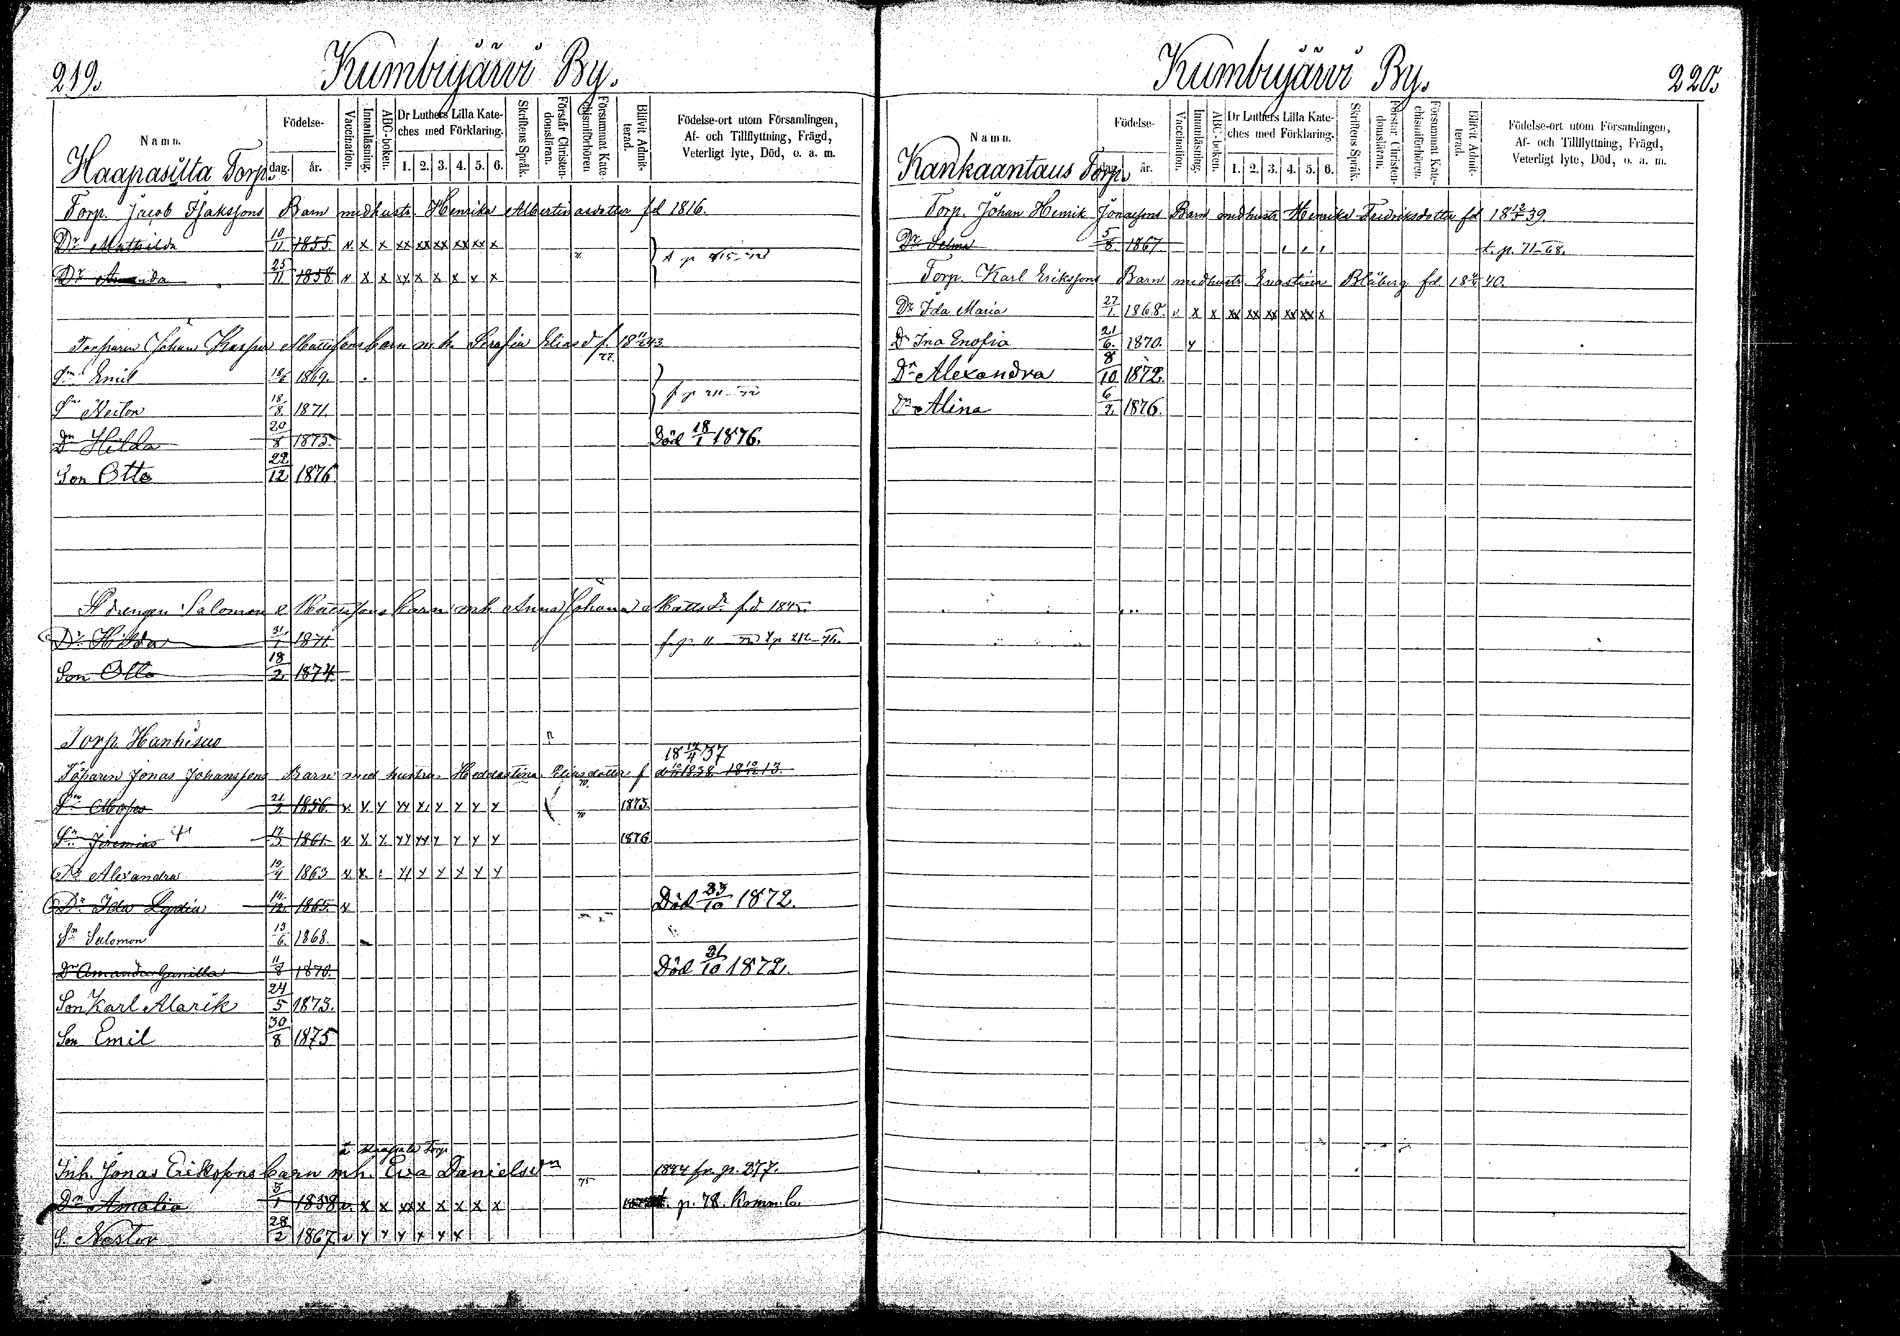 219.
Kumbujärvi By.
Namn.
Födelse-
dag. år.
Vaccination.
Innanläsning.
ABC-boken.
Dr Luthers Lilla Kateches med Förklaring.
1. 2. 3. 4. 5. 6.
Skriftens Språk.
Förstår Christendomsläran.
Försummat Katechismiförhören
Blifvit Admitterad.
Födelse-ort utom Församlingen,
Af- och Tillflyttning, Frägd,
Veterligt lyte, Död, o. a. m.
Haapasilta Torp.
Torp. Jacob Isakssons Barn med hustr. Henrika Albertina dotter fd 1816.
Dr Mathilda 10/11 1855. v x x xx xx xx xx xx x
Dr Amanda 25/11 1858 v x x xx x x x x x
Torparen Johan Kaspar Mattssons barn m. h. Serafia Elias d. f. 18 43
Sn Emil 18/6 1869.
Sn Nestor 18/8 1871.
Dr Hilda 20/8 1875. Död 18/1 1876.
Son Otto 22/12 1876
Drengen Salomon Mattssons barn mh. Anna Johana Matts dr f.d. 1845.
Dr Hilda 31/1 1871
Son Otto 18/2 1874
Torp. Hanhisuo
18 14/4 37
Torparen Jonas Johanssons Barn med hustru Heddastina Eliasdotter f
Sn Moses 21/2 1856. v x x xx x x x x x 1873.
Sn Jeremias 17/3 1861. v x x xx xx x x x x 1876
Dr Alexandra 1863 v x x x x x x x
Dr Ida Lydia 14/12 1865. v Död 23/10 1872.
Sn Salomon 13/6 1868.
Dr Amanda Gunilla 11/8 1870. Död 21/10 1872.
Son Karl Alarik 24/5 1873.
Son Emil 30/8 1875
Inh. Jonas Erikssons barn mh. Eva Danielsdr 1874 fr. p. 277.
Dr Amalia 3/1 1858 v x x xx x x x x x p. 78.
S. Nestor 28/2 1867 v x x x x x x
220.
Kumbujärvi By.
Namn.
Födelse-
dag. år.
Vaccination.
Innanläsning.
ABC-boken.
Dr Luthers Lilla Kateches med Förklaring.
1. 2. 3. 4. 5. 6.
Skriftens Språk.
Förstår Christendomsläran.
Försummat Katechismiförhören.
Blifvit Admitterad.
Födelse-ort utom Församlingen,
Af- och Tillflyttning, Frägd,
Veterligt lyte, Död, o. a. m.
Kankaantaus Torp.
Torp. Johan Henrik Jonassons Barn med hustr. Henrika Fredriksdotter fd 18 39.
Dr Selma 5/8 1867 t. p. 71-68.
Torp. Karl Erikssons Barn med hustr. Enastina Blåberg fd. 18 40.
Dr Ida Maria 27/1 1868. v x x xx xx xx xx xx x
Dr Ina Enofia 21/6. 1870. v
Dr Alexandra 8/10 1872.
Dr Alina 6/2 1876.